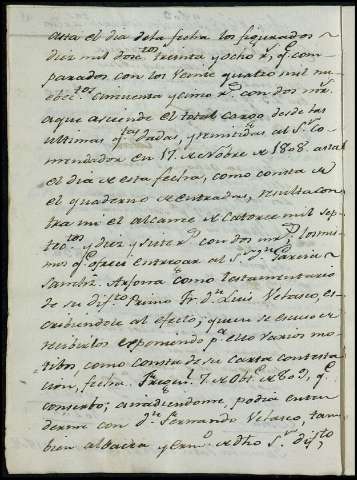 asta el dia de la fecha los figurados
diez mil doscᵗᵒˢ treinta y ocho rˢ, qᵉ com-
parados con los veinte quatro mil no-
bectᵒˢ cinquenta y cinco rˢ con dos mrˢ
a que asciende el total cargo desde las
ultimas qᵗᵃˢ dadas, y remitidas al Sʳ Co-
mendador en 17 de Novre de 1808 asta
el dia de esta fecha, como consta de
el quaderno de entradas, resulta con-
tra mi el alcanze de catorce mil sep-
tecᵗᵒˢ y diez y siete rˢ con dos mrˢ, los mis-
mos qᵉ ofreci entregar al Sʳ Dⁿ Garcia
Sanchz. Arjona como testamentario
de su difᵗᵒ Primo Fr. Dⁿ Luis Velasco, es-
cribiendole al efecto; quien se escusó re-
recibirlos exponiendo pᵃ ello varios mo-
tibos, como consta de su carta contesta-
cion, fecha Fregenˡ 7 de Obᵉ de 809, qᵉ
conserbo; añadiendome, podia enten-
derme con Dⁿ Fernando Velasco, tam-
bien albacea y ermⁿᵒ de dho Sʳ difᵗᵒ,